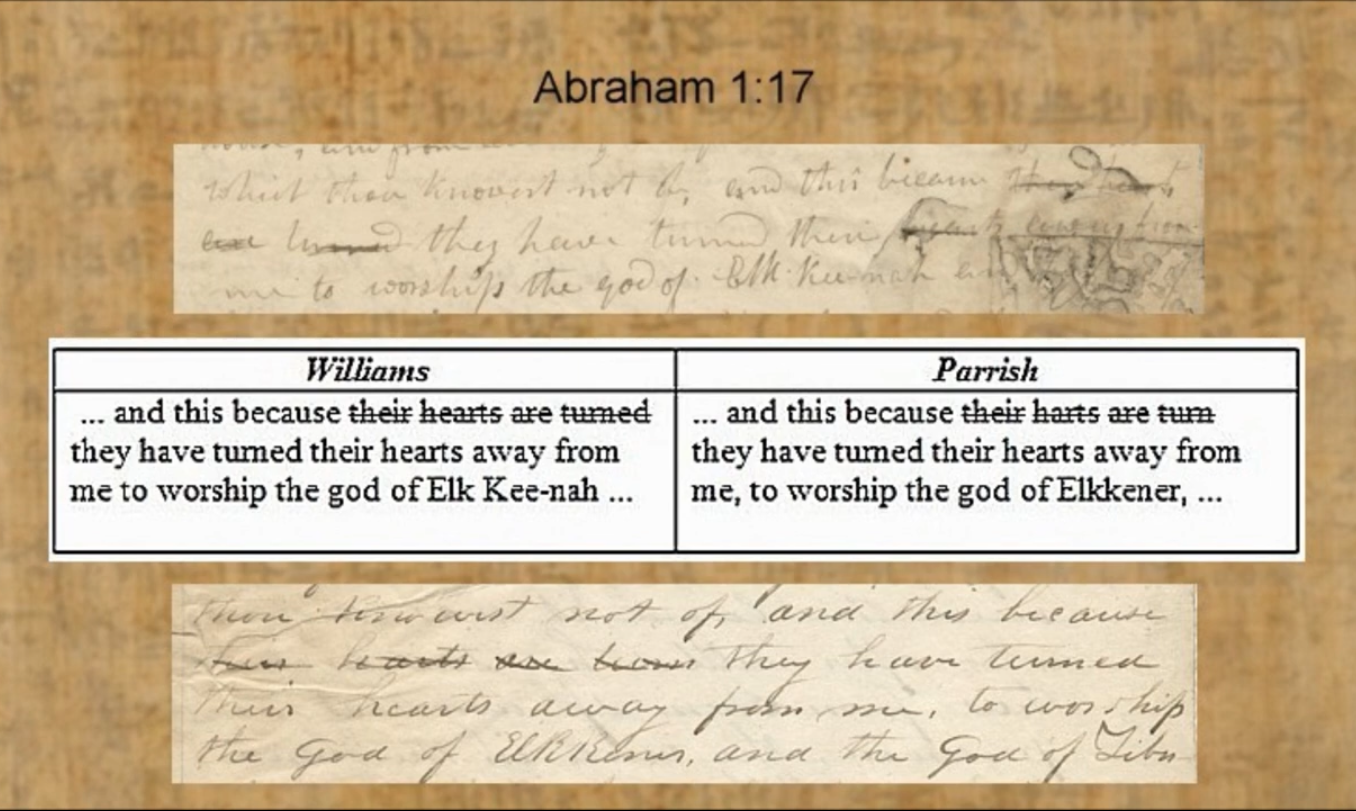 Abraham 1:17
which thou knowest not of, and this because their hearts
are turned they have turned their hearts away from
me to worship the god of Elk-Kee-nah
Williams
... and this because their hearts are turned
they have turned their hearts away from
me to worship the god of Elk Kee-nah ...
Parrish
... and this because their harts are turn
they have turned their hearts away from
me, to worship the god of Elkkener, ...
thou not of, and this because
their hearts are they have turned
their hearts away from me, to worship
the God of Elkkener, and the God of Zibn